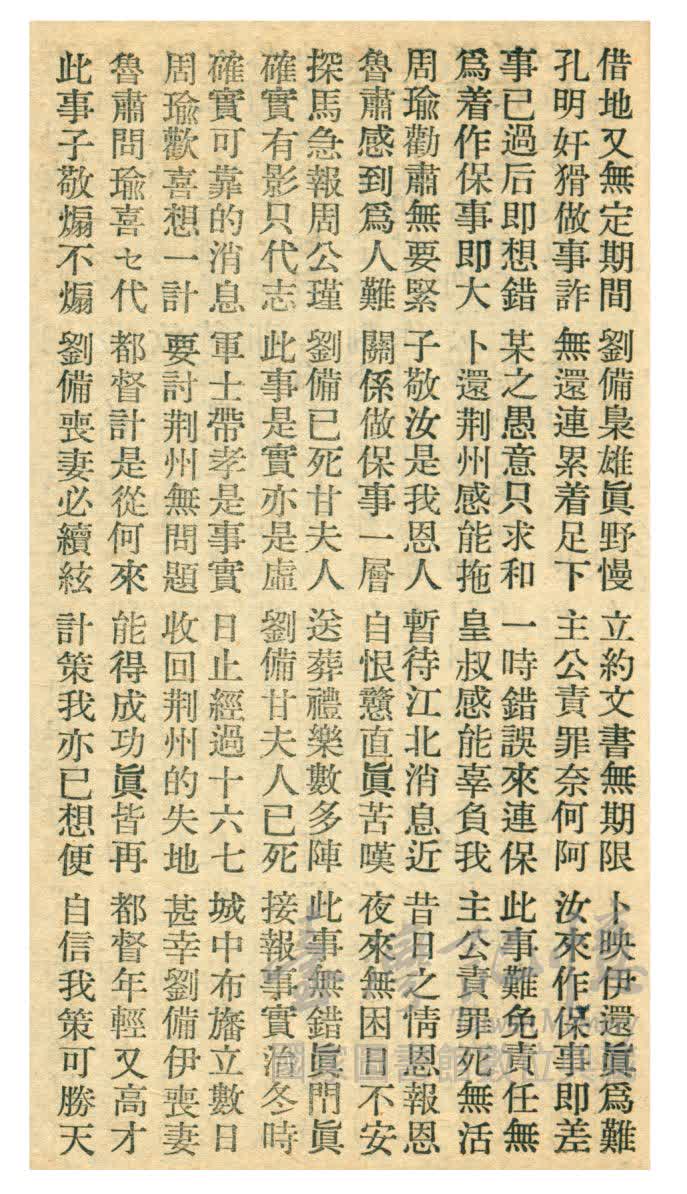 借地又無定期間 劉備梟雄眞野慢 立約文書無期限 卜映伊還眞爲難
孔明奸猾做事詐 無還連累着足下 主公責罪奈何阿 汝來作保事即差
事已過后即想錯 某之愚意只求和 一時錯誤來連保 此事難免責任無
爲着作保事即大 卜還荆州感能拖 皇叔感能辜負我 主公責罪死無活
周瑜勸肅無要緊 子敬汝是我恩人 暫待江北消息近 昔日之情恩報恩
魯肅感到爲人難 關係做保事一層 自恨戇直眞苦嘆 夜來無困日不安
探馬急報周公瑾 劉備已死甘夫人 送葬禮樂數多陣 此事無錯眞閂眞
確實有影只代志 此事是實亦是虛 劉備甘夫人已死 接報事實治冬時
確實可靠的消息 軍士帶孝是事實 日止經過十六七 城中布旛立數日
周瑜歡喜想一計 要討荆州無問題 收回荆州的失地 甚幸劉備伊喪妻
魯肅問瑜喜セ代 都督計是從何來 能得成功眞皆再 都督年輕又高才
此事子敬煽不煽 劉備喪妻必續絃 計策我亦已想便 自信我策可勝天
臺灣記憶
Taiwan Memory
國家圖書館數位典藏